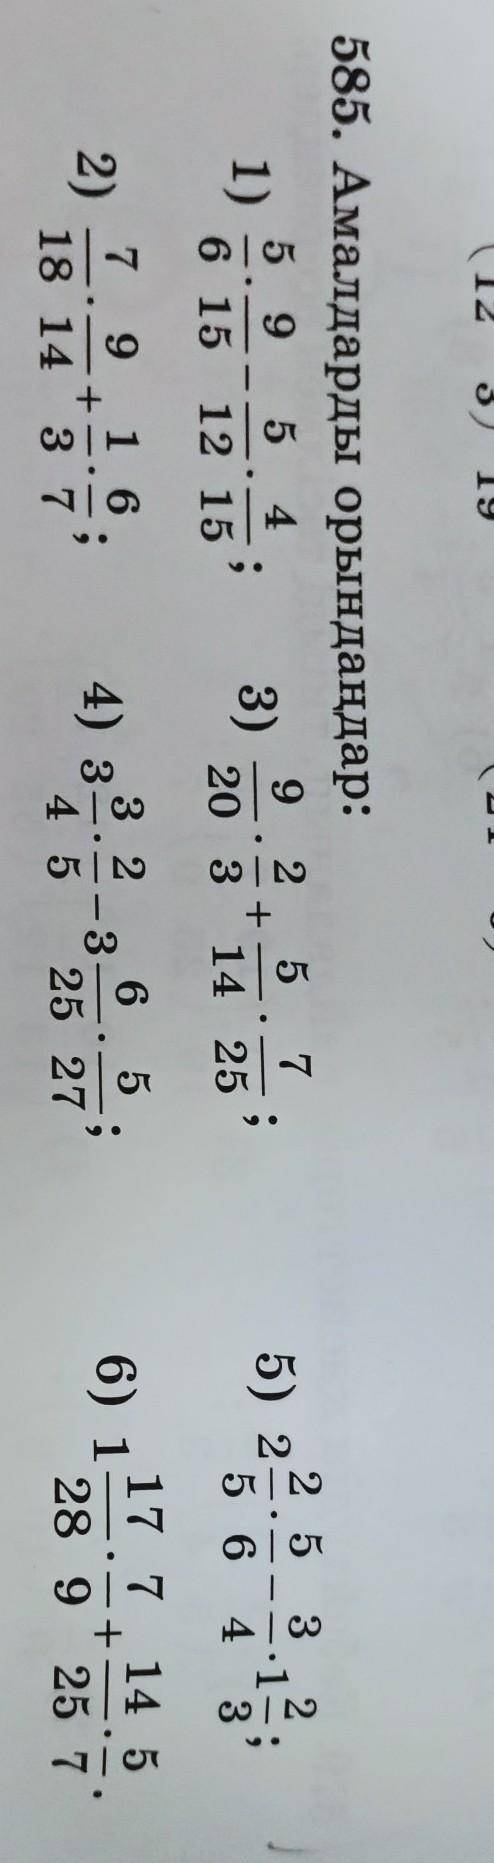 585. Амалдарды орындаңдар:
1) 5/6 · 9/15 − 5/12 · 4/15; 3) 9/20 · 2/3 + 5/14 · 7/25; 5) 2 2/5 · 5/6 − 3/4 · 1 2/3;
2) 7/18 · 9/14 + 1/3 · 6/7; 4) 3 3/4 · 2/5 − 3 6/25 · 5/27; 6) 1 17/28 · 7/9 + 14/25 · 5/7.